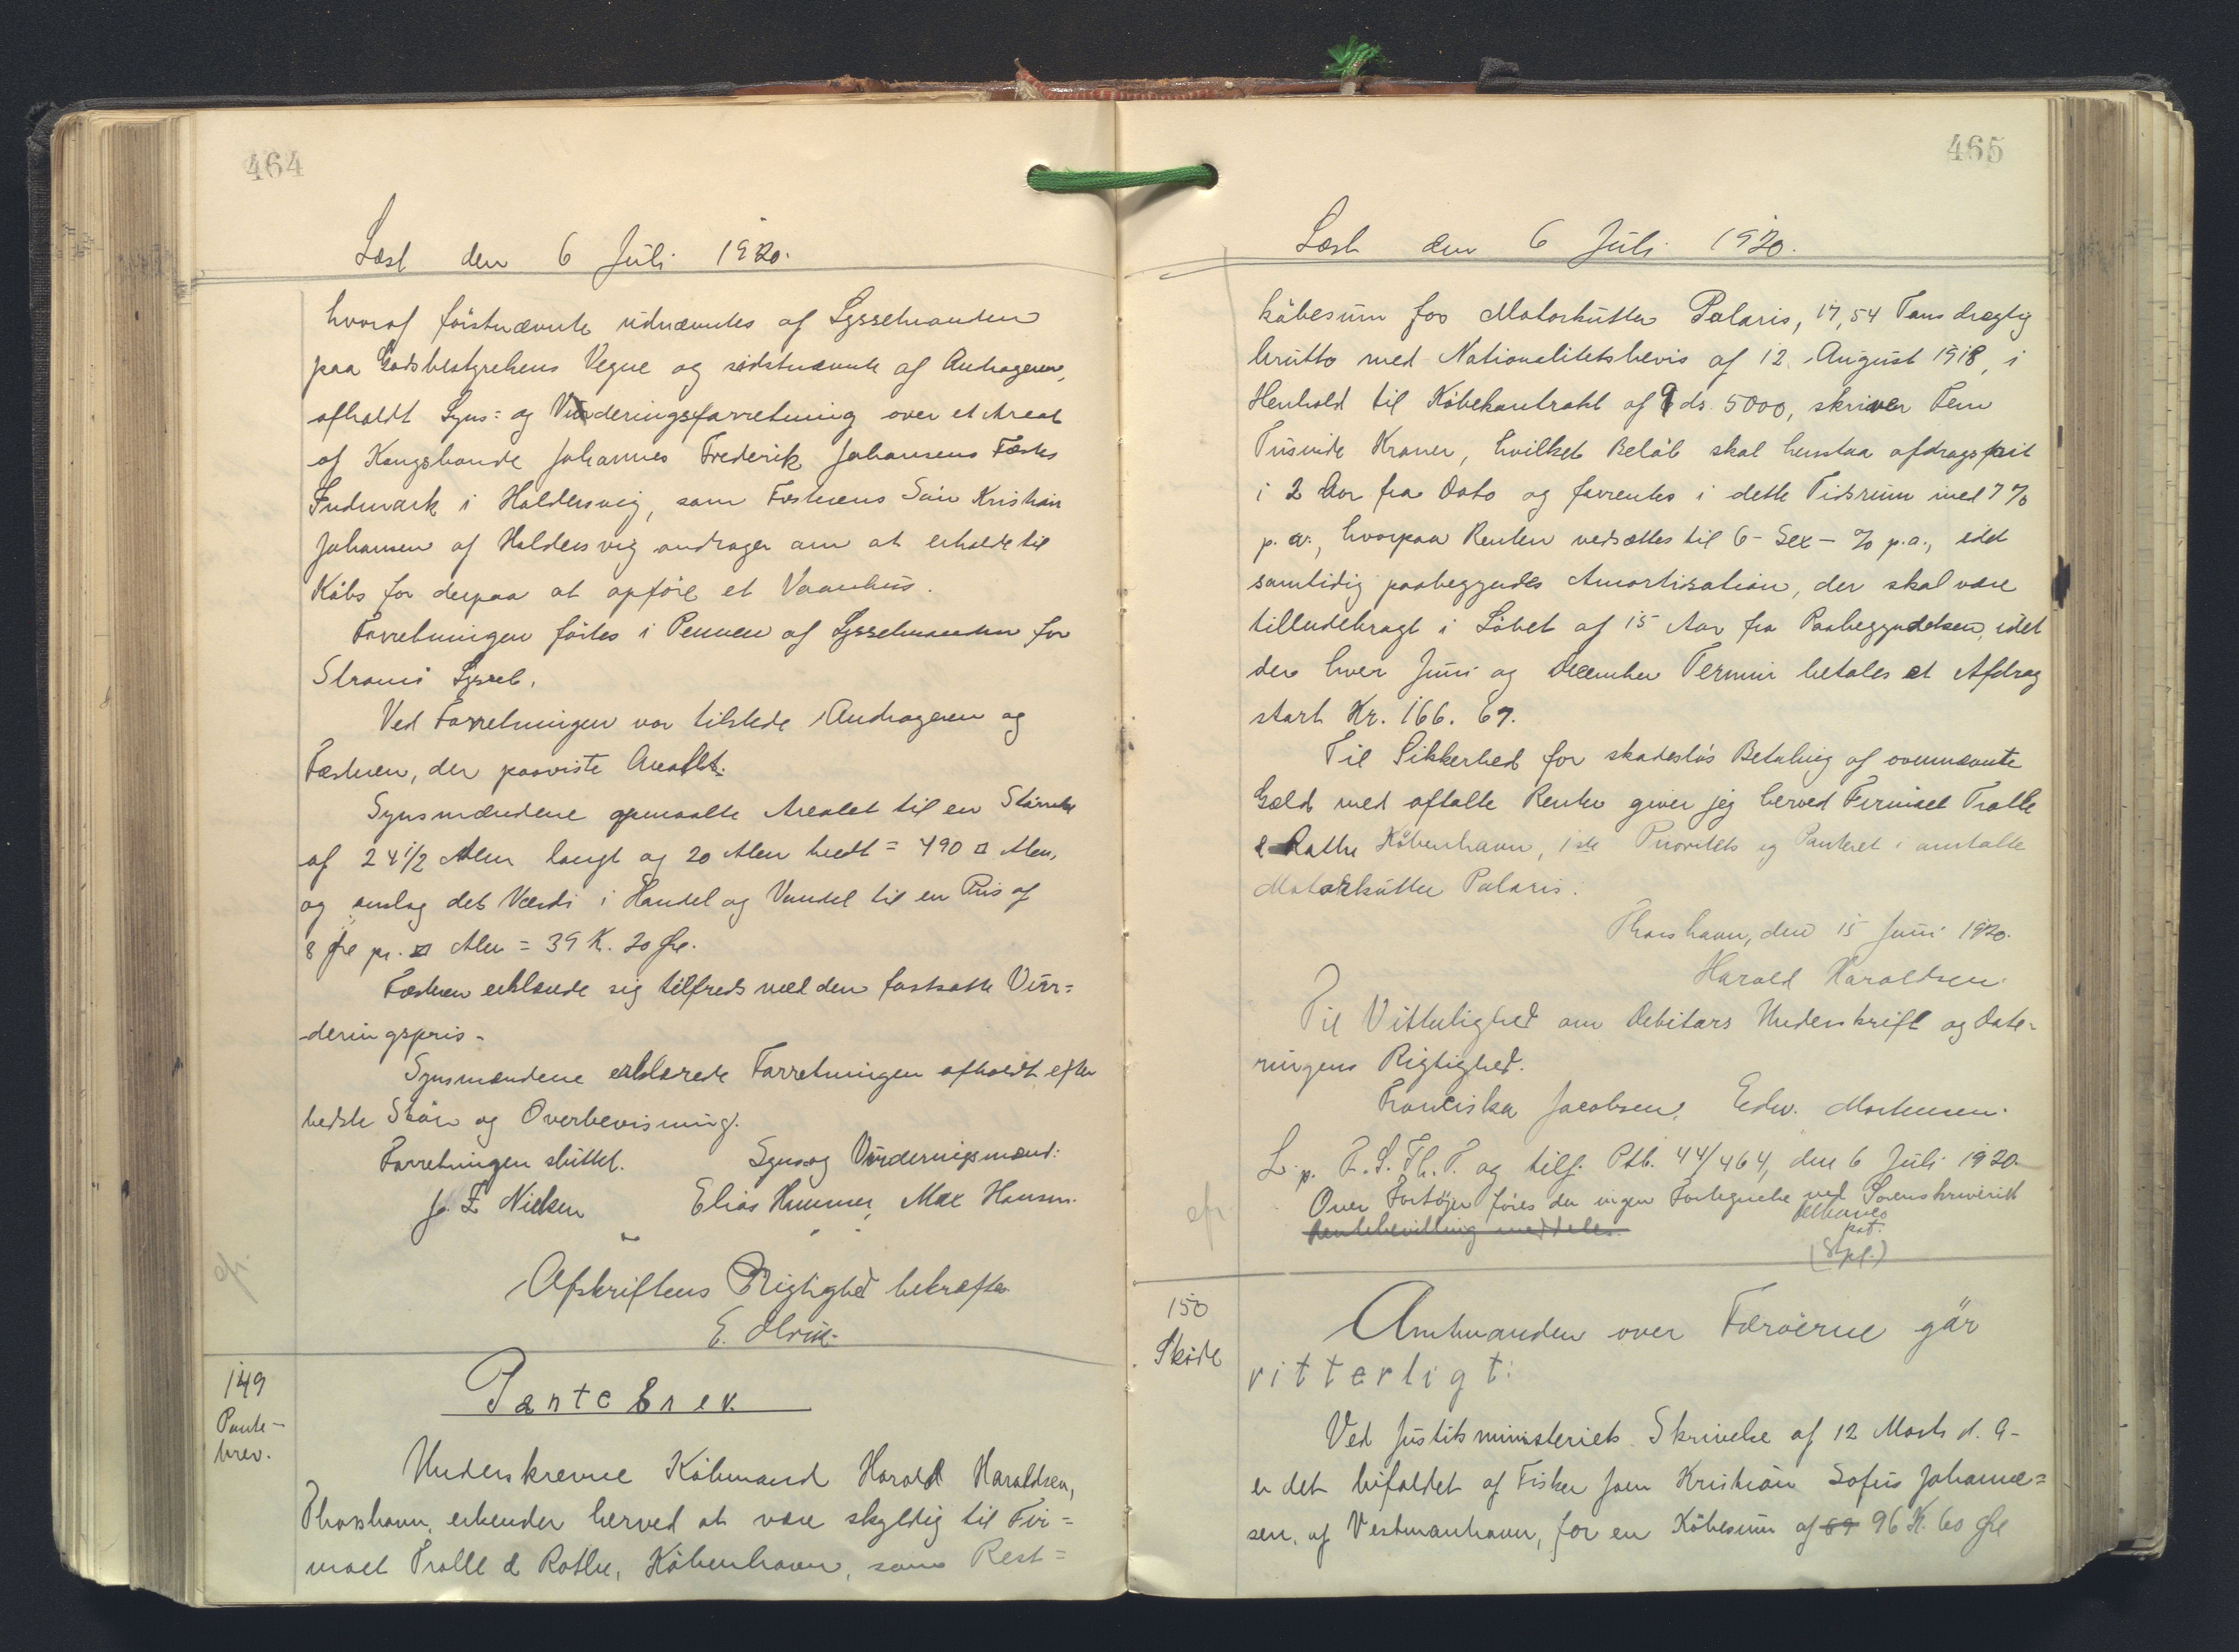 464
Læst den 6 Juli 1920.
hvoraf förstnævnte udnævntes af Sysselmanden
paa Godsbestyrelsens Vegne og sidstnævnte af Andrageren,
afholdt Syns= og Vurderingsforretning over et Areal
af Kongsbonde Johannes Frederik Johansens Fæstes
Indmark i Haldersvig, som Fæsterens Sön Kristian
Johansen af Haldersvig andrager om at erholde til
Köbs for derpaa at opföre et Vaanhus.
Forretningen förtes i Pennen af Sysselmanden for
Strömö Syssel.
Ved Forretningen var tilstede Andrageren og
Fæsteren, der paaviste Arealet.
Synsmændene opmaalte Arealet til en Störrelse
af 24 1/2 Alen langt og 20 Alen bredt = 490 □ Alen,
og anslog det Værdi i Handel og Vandel til en Pris af
8 Øre pr. □ Alen = 39 K. 20 Øre.
Fæsteren erklærede sig tilfreds med den fastsatte Vur=
deringspris.
Synsmændene erklærede Forretningen afholdt efter
bedste Skön og Overbevisning.
Forretningen sluttet. Syns og Vurderingsmænd:
J. Z Nielsen Elias Hummer, Max Hansen.
Afskriftens Rigtighed bekræfter
E.
149
Pante-
brev.
Pantebrev.
Underskrevne Köbmand Harald Haraldsen,
Thorshavn, erkender herved at være skyldig til Fir=
maet Trolle & Rothe, Köbenhavn, som Rest=
465
Læst den 6 Juli 1920.
köbesum for Motorkutter Polaris, 17,54 Tons drægtig
brutto med Nationalitetsbevis af 12. August 1918, i
Henhold til Köbekontrakt af 9 ds. 5000, skriver Fem
Tusinde Kroner, hvilket Belöb skal henstaa afdragsfrit
i 2 Aar fra Dato og forrentes i dette Tidsrum med 7 %
p. a., hvorpaa Renten nedsættes til 6 - Sex - % p.a., idet
samtidig paabegyndes Amortisation, der skal være
tilendebragt i Löbet af 15 Aar fra Paabegyndelsen, idet
der hver Juni og December Termin betales et Afdrag
stort Kr. 166. 67.
Til Sikkerhed for skadeslös Betaling af ovennævnte
Gæld med aftalte Renter giver jeg herved Firmaet Trolle
& Rothe Köbenhavn, 1ste Prioritets og Panteret i omtalte
Motorkutter Polaris.
Thorshavn, den 15 Juni 1920.
Harald Haraldsen.
Til Vitterlighed om Debitors Underskrift og Date=
ringens Rigtighed.
Franciska Jacobsen. Edw. Mortensen.
L. p. F. S. Th. T. og tilf. Ptb. 44/464, den 6 Juli 1920.
Over Fartöjer föres der ingen Fortegnelse ved Sorenskriveriet
Rentebevilling meddeles.
kst.
(Stpl.)
150
Sköde
Amtmanden over Færöerne gör
vitterligt:
Ved Justitsministeriets Skrivelse af 12 Marts d. A-
er det bifaldet af Fisker Joen Kristian Sofus Johanne=
sen, af Vestmanhavn, for en Köbesum af 69 96 K. 60 Øre